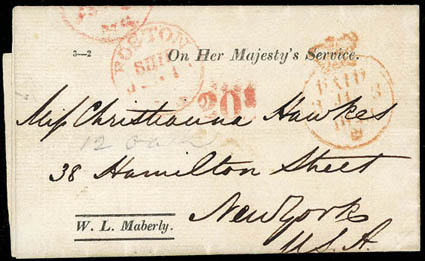 3—2
On Her Majesty's Service.
BOSTON
SHIP
20
PAID
Miss Christianna Hawkes
12
38 Hamilton Street
New York
U.S.A.
W. L. Maberly.